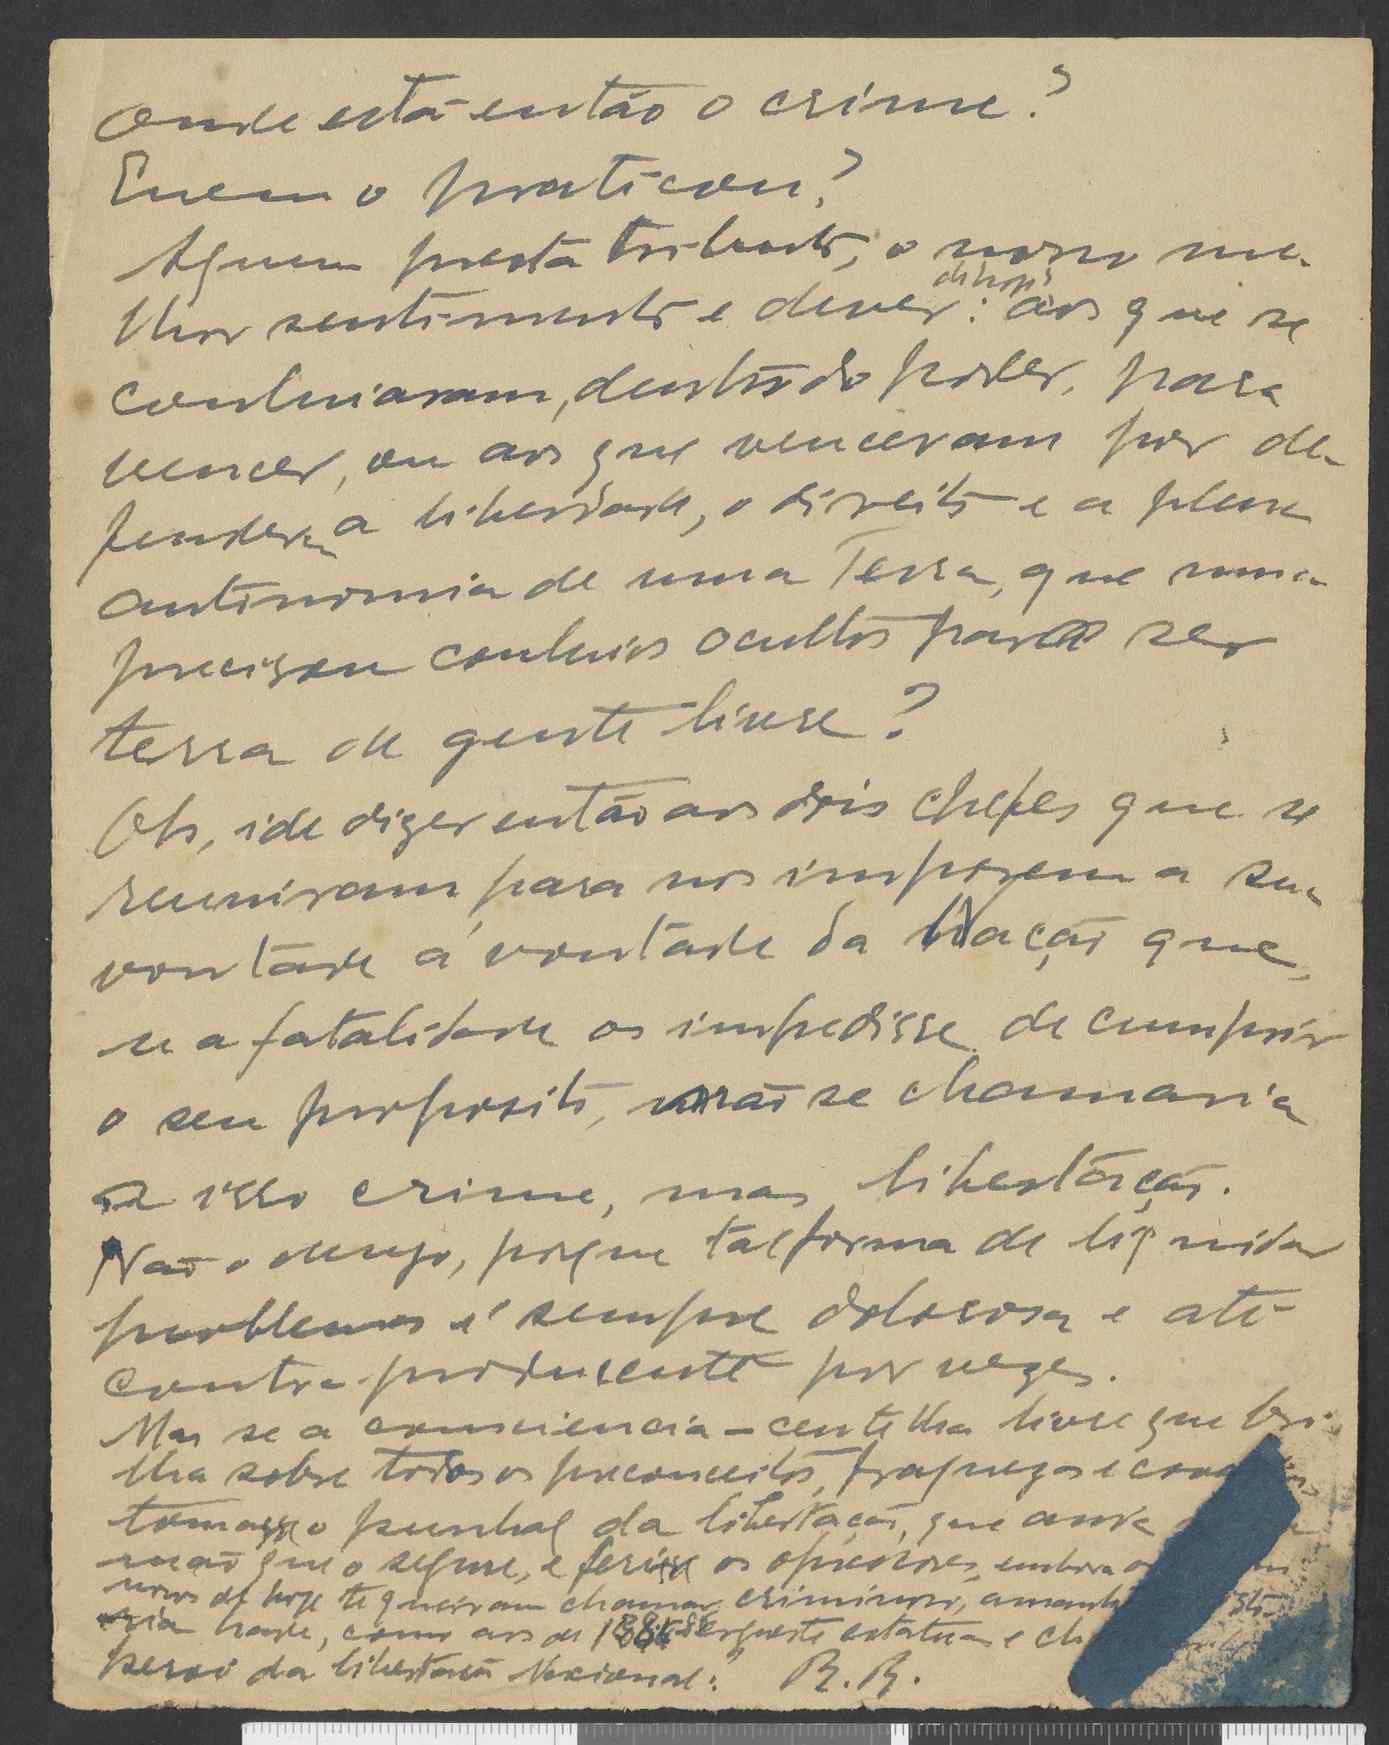 Onde está então o crime?
Quem o praticou?
A quem presta tributo, o nosso me-
lhor sentimento e dever: aos que se
conluiaram, dentro do poder, para
vencer, ou aos que venceram por de-
fenderem a liberdade, o direito e a plena
autonomia de uma Terra, que nunca
precisou conluios ocultos para ser
terra de gente livre?
Oh, ide dizer então aos dois chefes que se
reuniram para nos imporem a sua
vontade á vontade da Nação que,
se a fatalidade os impedisse de cumprir
o seu proposito, não se chamaria
a isso crime, mas libertação.
Não o desejo, porque tal forma de liquidar
problemas é sempre dolorosa e até
contra-producente por vezes.
Mas se a consciencia - centelha livre que bri-
lha sobre todos os preconceitos, fraquezas e
tomasse o punhal da libertação, que arme
mão que o segure, e ferisse os opressores, embora os
de hoje te queiram chamar criminoso, amanhã
ria hade, como aos de erguerte estatuas e
heroi da libertação Nacional." R.R.